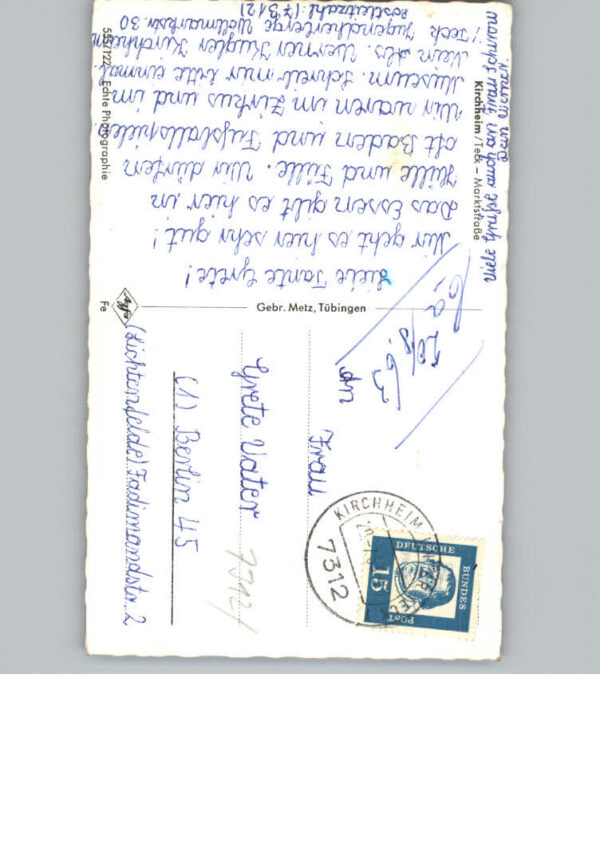 Liebe Tante Grete!
Mir geht es hier sehr gut!
Das Essen gibt es hier in
Hülle und Fülle. Wir dürfen
oft Baden und Fußballspielen.
Wir waren im Zirkus und im
Museum. Schreib mir bitte einmal.
Mein Abs. Werner Kugler Kirchheim
/Teck Jugendherberge Wollmarktstr 30
Postleitzahl: (7312)
Viele Grüße auch an Frau
Dein Werner.
Kirchheim/Teck – Marktstraße
555/122 Echte Photographie
Gebr. Metz, Tübingen
Agfa
Fe
20/8.63
an
Frau
Grete Vater
(1) Berlin 45
(Lichtenfelde) 2
7312/
KIRCHHEIM UNTER TECK
7312
DEUTSCHE
BUNDES
POST
15